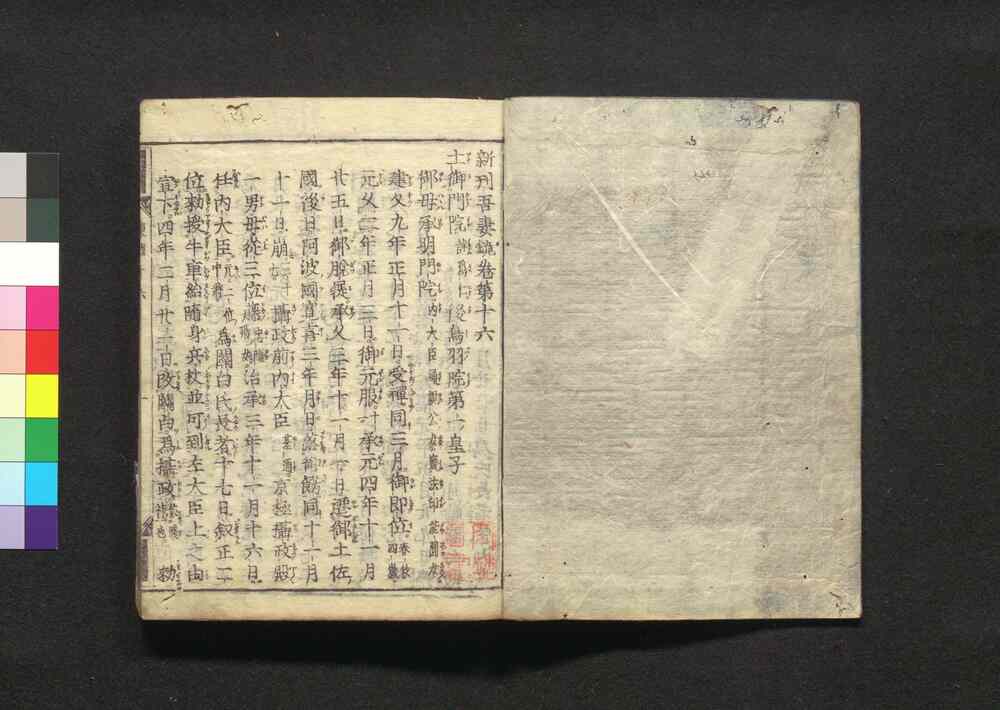 新刊吾妻鏡卷第十六
土御門院 諱爲仁 後鳥羽院第一皇子
御母承明門院 内大臣通親公女實法印能圓女
建久九年正月十一日受禪同三月御即位 春秋四歲
元久二年正月三日御元服 承元四年十一月
廿五日御脫屣承久三年十一月十日遷御土佐
國後日阿波國寬喜三年月日落御餝同十一月
十一日崩 攝政前内大臣 基通 京極攝政殿
一男母從三位 忠隆 治承三年十一月十六日
任内大臣 元二位中將 爲關白氏長者十七日叙正二
位勅授牛車給随身兵杖並可列左大臣上之由
宣下四年二月廿一日改關白爲攝政 勅